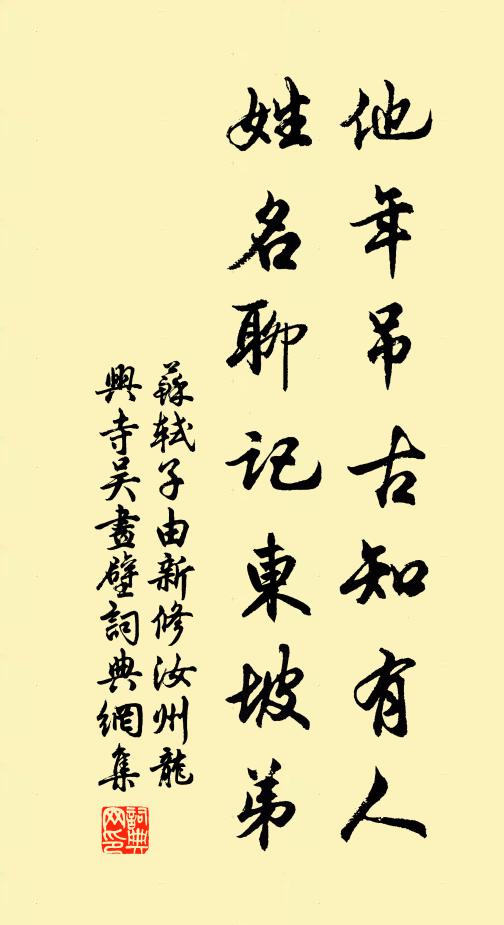 他年吊古知有人
姓名聊記東坡弟
蘇軾子由新修汝州龍
興寺吴畫壁詞典網集
詞典网印